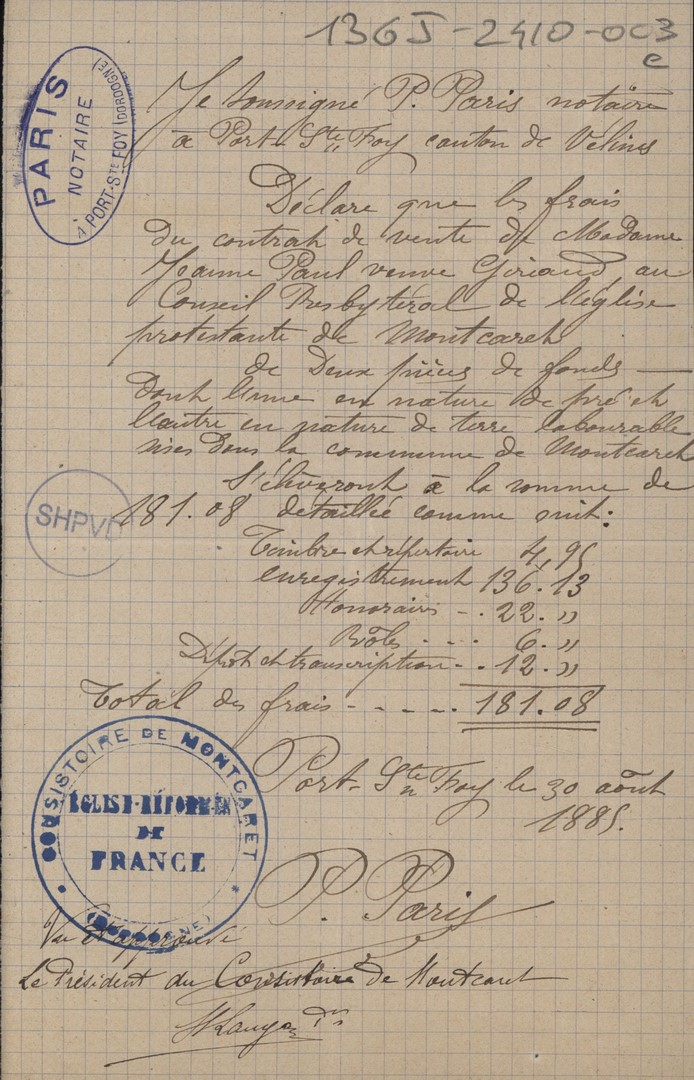 136J-2410-003
e
PARIS
NOTAIRE
À PORT-STE FOY (DORDOGNE)
Je soussigné P. Paris notaire
à Port-Ste Foy canton de Vélines
Déclare que les frais
du contrat de vente de Madame
Jeanne Paul veuve Giraud, au
Conseil Presbytéral de l'église
protestante de Montcaret
de Deux pièces de fonds —
dont l'une en nature de pré et
l'autre en nature de terre labourable
sises dans la commune de Montcaret
S'élèveront à la somme de
181.08 détaillée comme suit:
SHPVD
Timbre et répertoire 4,95
enregistrement 136.13
Honoraires - . 22. „
Rôles . . . . 6. „
Dépôt et transcription - . 12. „
Total des frais - - - - . 181.08
Port-Ste Foy le 30 août
1885.
CONSISTOIRE DE MONTCARET
EGLISE-RÉFORMÉE
DE
FRANCE
(DORDOGNE)
P. Paris
Vu et approuvé
Le Président du Consistoire de Montcaret